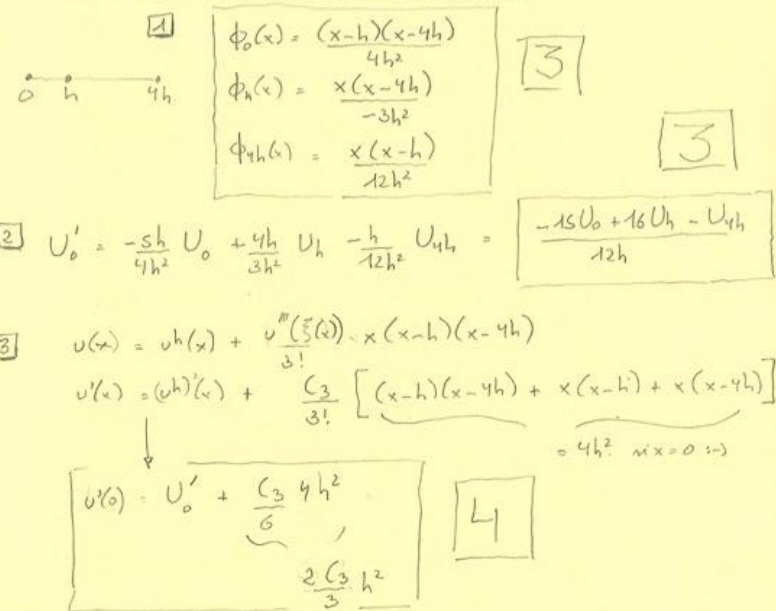 1
ϕ₀(x) = (x-h)(x-4h) / 4h²
0 h 4h
ϕₕ(x) = x(x-4h) / -3h²
3
ϕ₄ₕ(x) = x(x-h) / 12h²
3
2 U₀' = -5h/4h² U₀ + 4h/3h² Uₕ - h/12h² U₄ₕ = (-15U₀ + 16Uₕ - U₄ₕ) / 12h
3 u(x) = uʰ(x) + u'''(ξ(x))/3! · x(x-h)(x-4h)
u'(x) = (uʰ)'(x) + C₃/3! [(x-h)(x-4h) + x(x-h) + x(x-4h)]
= 4h² si x=0 :-)
u'(0) = U₀' + C₃/6 4h²
4
2C₃/3 h²